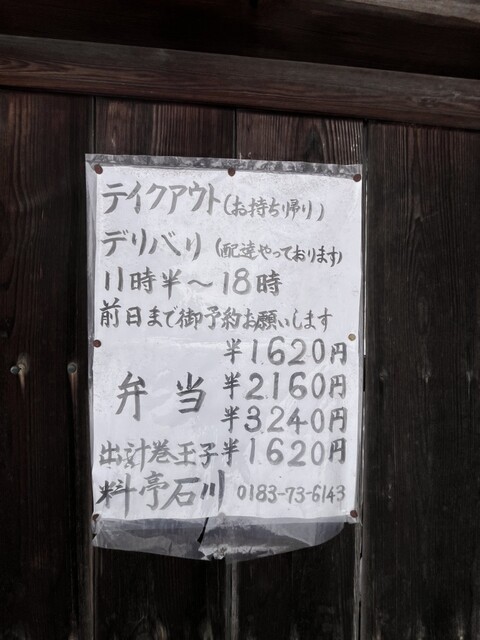 テイクアウト(お持ち帰り)
デリバリ(配達やっております)
11時半～18時
前日まで御予約お願いします
弁当
半1.620円
半2.160円
半3.240円
出汁巻玉子半1620円
料亭石川 0183-73-6143